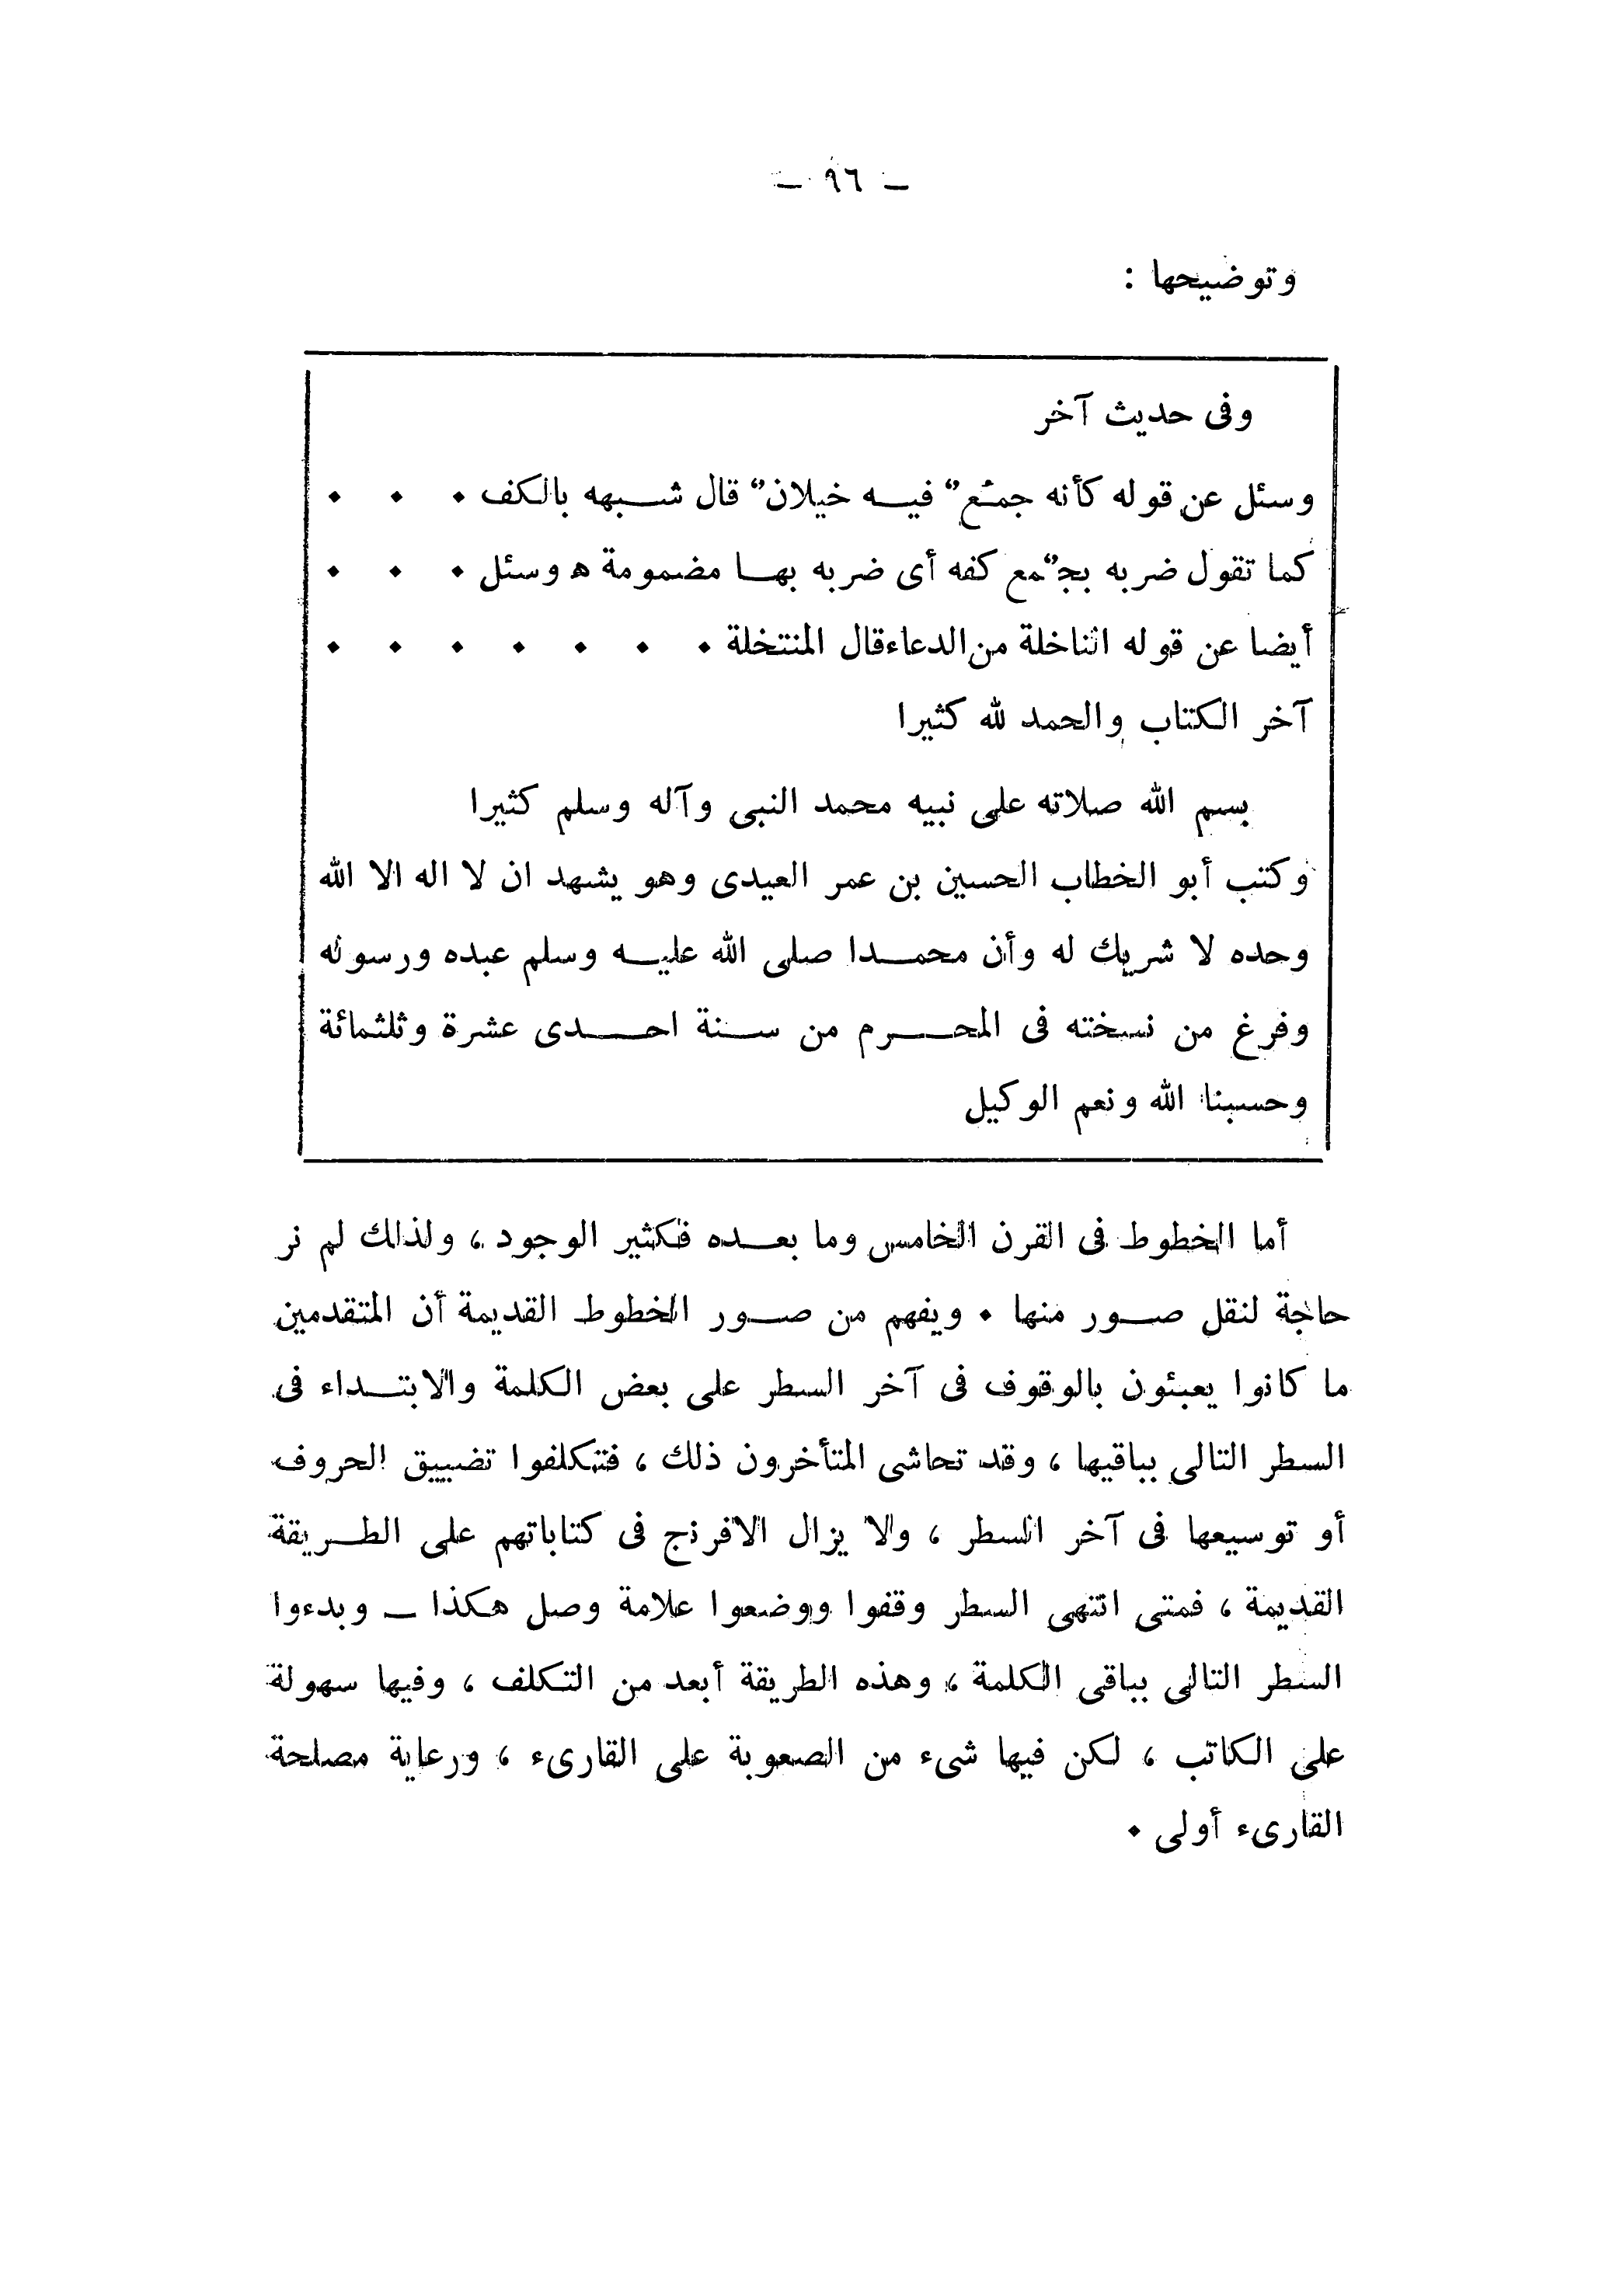 — ٩٦ —
وتوضيحها :
وفى حديث آخر
وسئل عن قوله كأنه جمْع" فيه خيلان" قال شبهه بالكف . . .
كما تقول ضربه بجُمع كفه أى ضربه بها مضمومة ه وسئل . . .
أيضا عن قوله الناخلة من الدعاء قال المنتخلة . . . . . . .
آخر الكتاب والحمد لله كثيرا
بسم الله صلاته على نبيه محمد النبى وآله وسلم كثيرا
وكتب أبو الخطاب الحسين بن عمر العيدى وهو يشهد ان لا اله الا الله
وحده لا شريك له وأن محمدا صلى الله عليه وسلم عبده ورسوله
وفرغ من نسخته فى المحرم من سنة احدى عشرة وثلثمائة
وحسبنا الله ونعم الوكيل
أما الخطوط فى القرن الخامس وما بعده فكثير الوجود ، ولذلك لم نر
حاجة لنقل صور منها . ويفهم من صور الخطوط القديمة أن المتقدمين
ما كانوا يعبئون بالوقوف فى آخر السطر على بعض الكلمة والابتداء فى
السطر التالى بباقيها ، وقد تحاشى المتأخرون ذلك ، فتكلفوا تضييق الحروف
أو توسيعها فى آخر السطر ، ولا يزال الافرنج فى كتاباتهم على الطريقة
القديمة ، فمتى انتهى السطر وقفوا ووضعوا علامة وصل هكذا — وبدءوا
السطر التالى بباقى الكلمة ، وهذه الطريقة أبعد من التكلف ، وفيها سهولة
على الكاتب ، لكن فيها شىء من الصعوبة على القارىء ، ورعاية مصلحة
القارىء أولى .